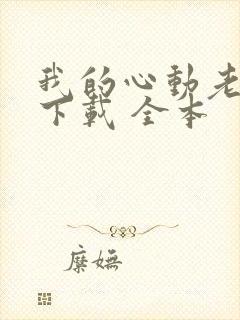 我的心動老
下載 全本
糜嫵